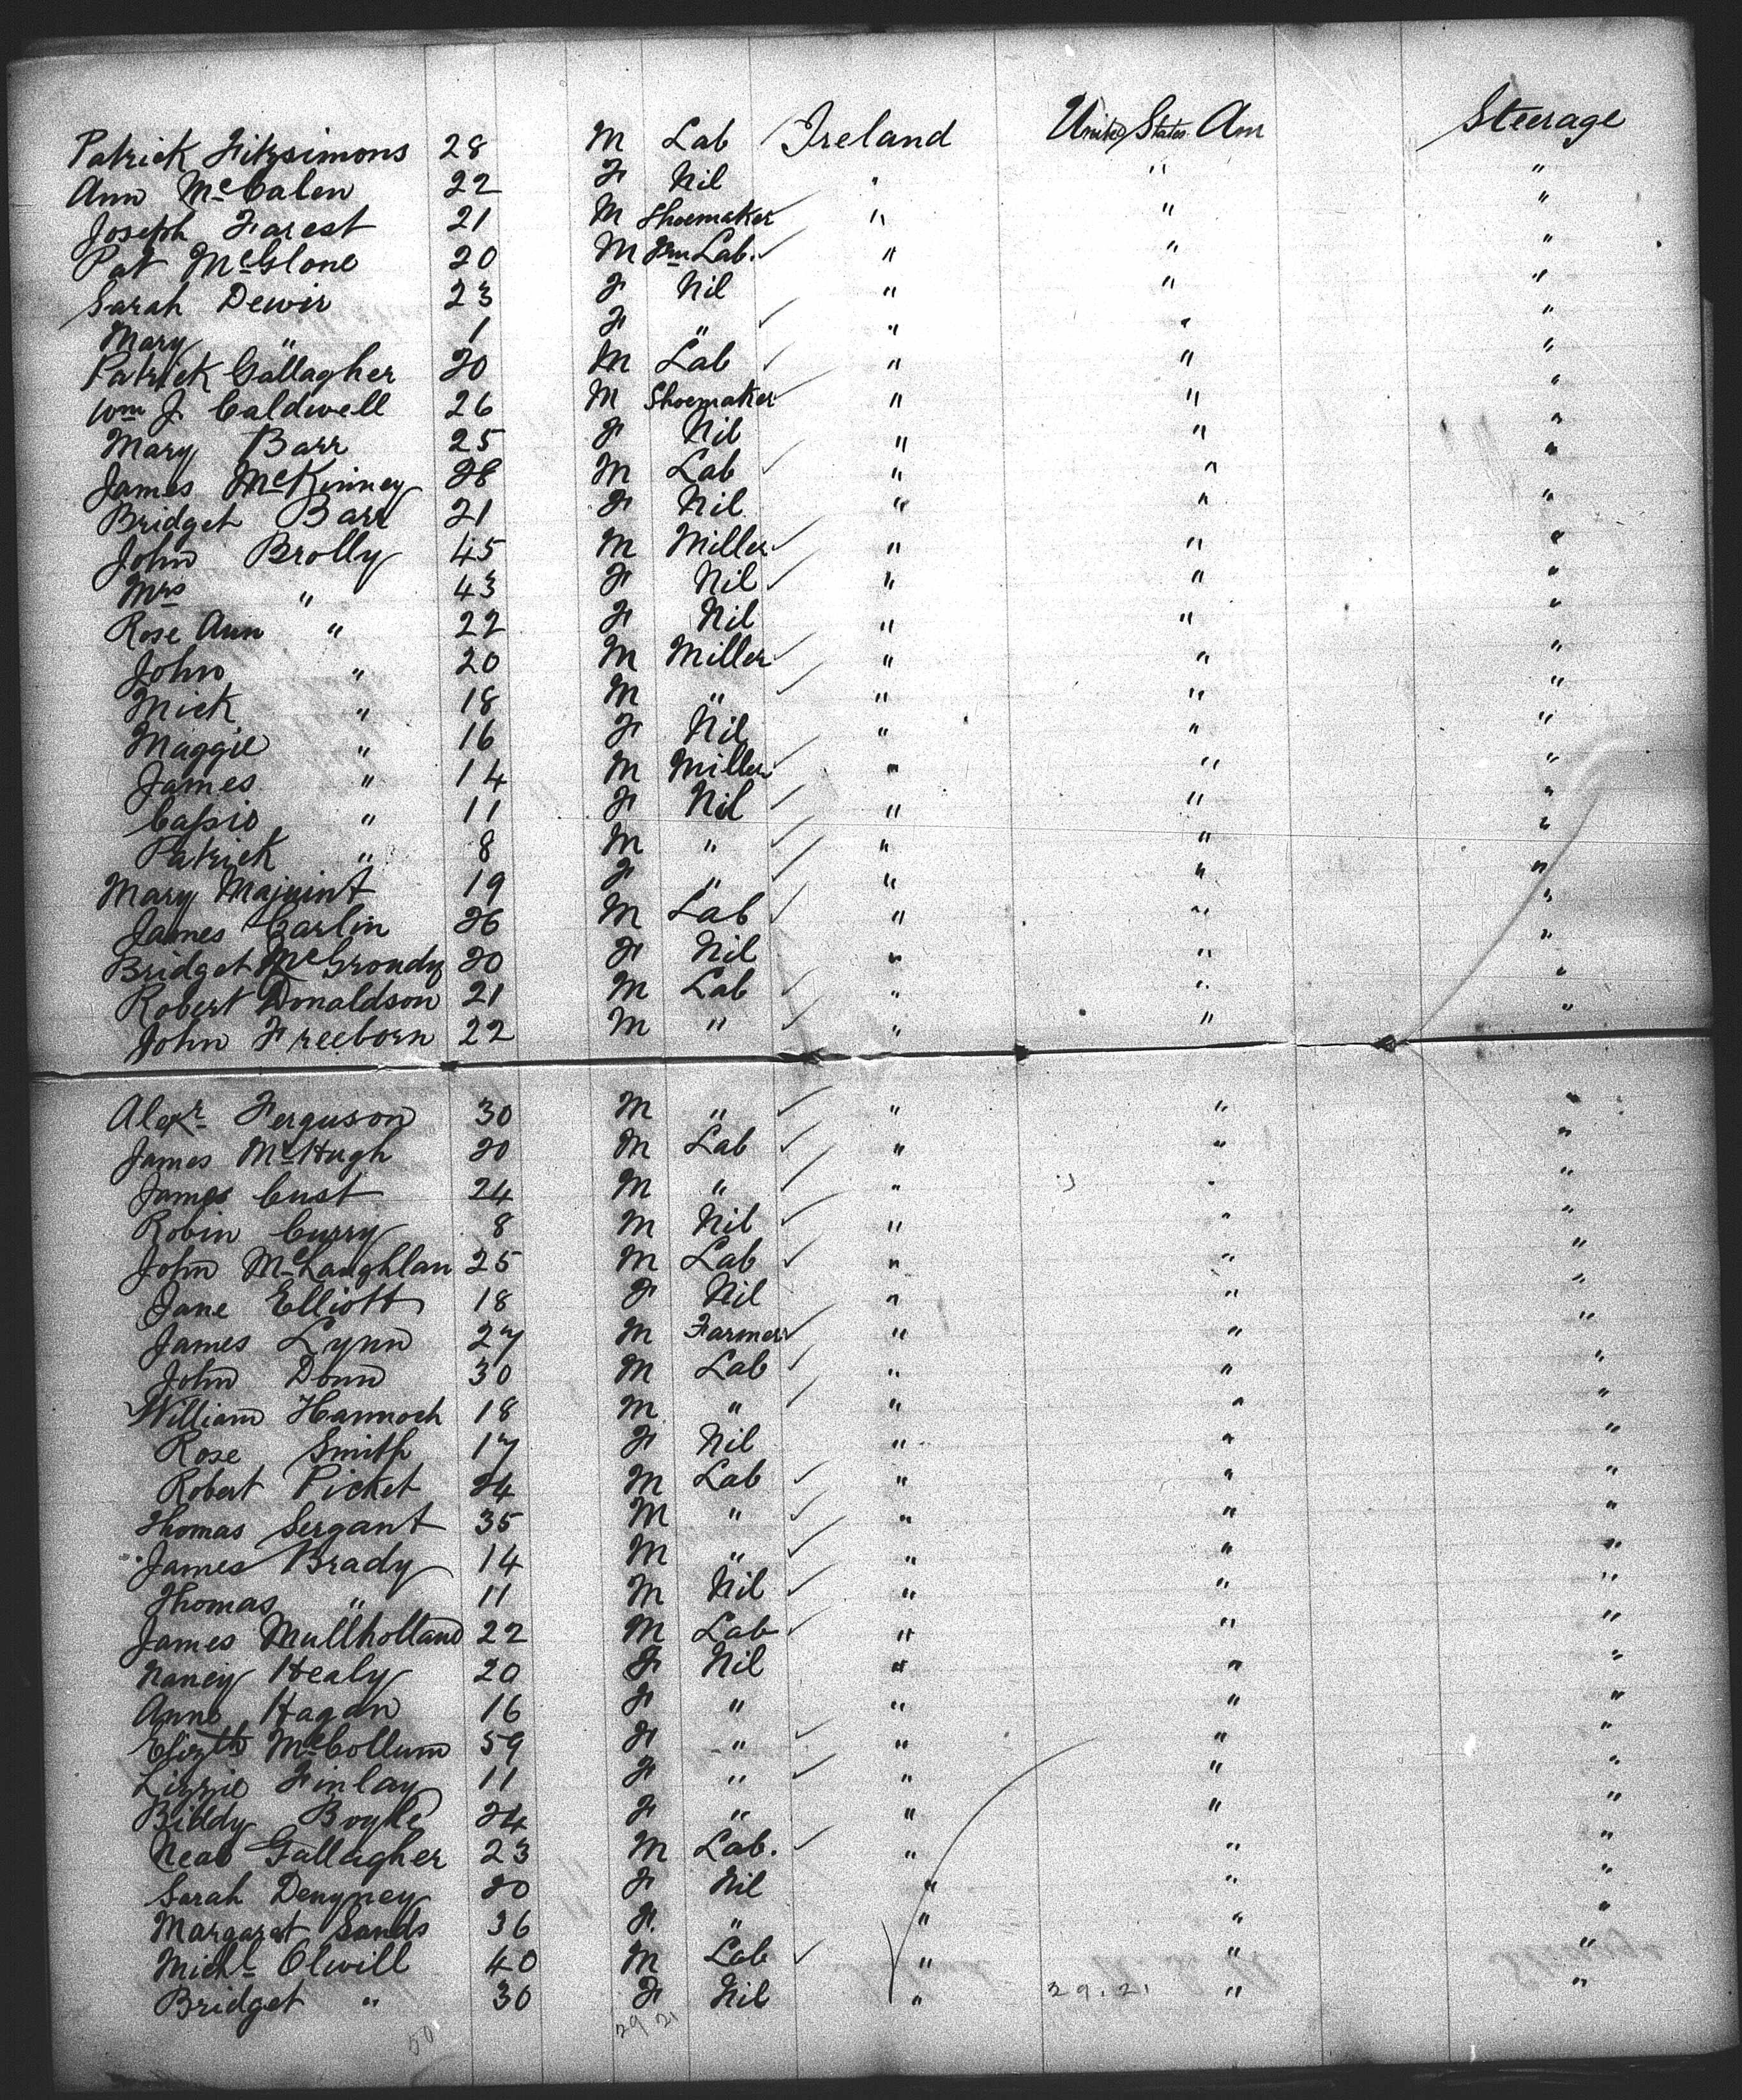 Patrick Fitzsimons 28 M Lab Ireland United States Am Steerage
Ann McCalen 22 F Nil " " "
Joseph Farest 21 M Shoemaker " " "
Pat McGlone 20 M Fm Lab. " " "
Sarah Dewir 23 F Nil " " "
Mary " 1 F " " " "
Patrick Gallagher 20 M Lab " " "
Wm J. Caldwell 26 M Shoemaker " " "
Mary Barr 25 F Nil " " "
James McKinney 28 M Lab " " "
Bridget Barr 21 F Nil " " "
John Brolly 45 M Miller " " "
Mrs " 43 F Nil " " "
Rose Ann " 22 F Nil " " "
John " 20 M Miller " " "
Mick " 18 M " " " "
Maggie " 16 F Nil " " "
James " 14 M Miller " " "
Cassie " 11 F Nil " " "
Patrick " 8 M " " " "
Mary 19 F " " " "
James Carlin 26 M Lab " " "
Bridget McGrondy 20 F Nil " " "
Robert Donaldson 21 M Lab " " "
John Freeborn 22 M " " " "
Alexr Ferguson 30 M " " " "
James McHugh 20 M Lab " " "
James Cust 24 M " " " "
Robin Curry 8 M Nil " " "
John McLaughlan 25 M Lab " " "
Jane Elliott 18 F Nil " " "
James Lynn 27 M Farmer " " "
John Donn 30 M Lab " " "
William Hannoch 18 M " " " "
Rose Smith 17 F Nil " " "
Robert Picket 24 M Lab " " "
Thomas Sergant 35 M " " " "
James Brady 14 M " " " "
Thomas " 11 M Nil " " "
James Mullholland 22 M Lab " " "
Nancy Healy 20 F Nil " " "
Anne Hagan 16 F " " " "
Elizth McCollum 59 F " " " "
Lizzie Finlay 11 F " " " "
Biddy Boyle 24 F " " " "
Neal Gallagher 23 M Lab. " " "
Sarah 20 F Nil " " "
Margaret Sands 36 F. " " " "
Michl Olwill 40 M Lab " " "
Bridget " 30 F Nil " 29.21 " "
50 29 21